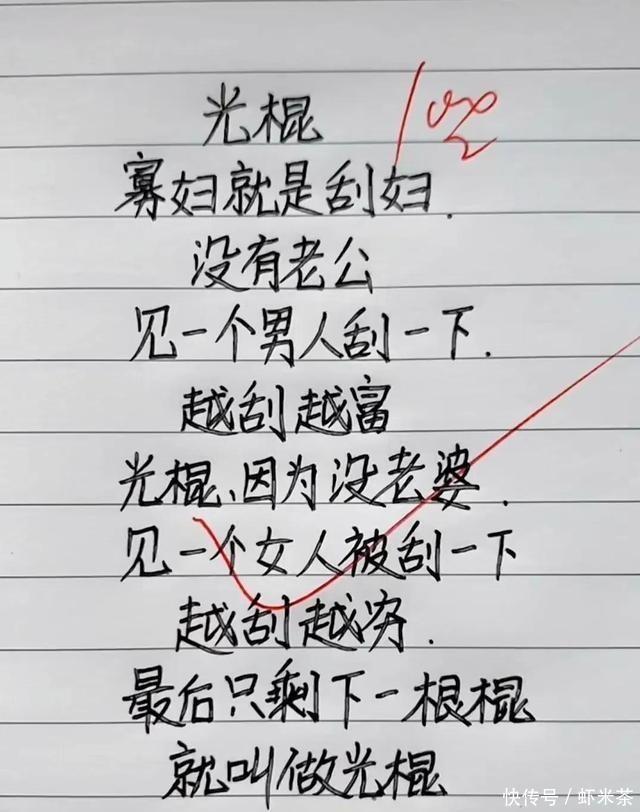 光棍
100
寡妇就是刮妇.
没有老公
见一个男人刮一下.
越刮越富
光棍、因为没老婆.
见一个女人被刮一下
越刮越穷.
最后只剩下一根棍
就叫做光棍
快传号/虾米茶